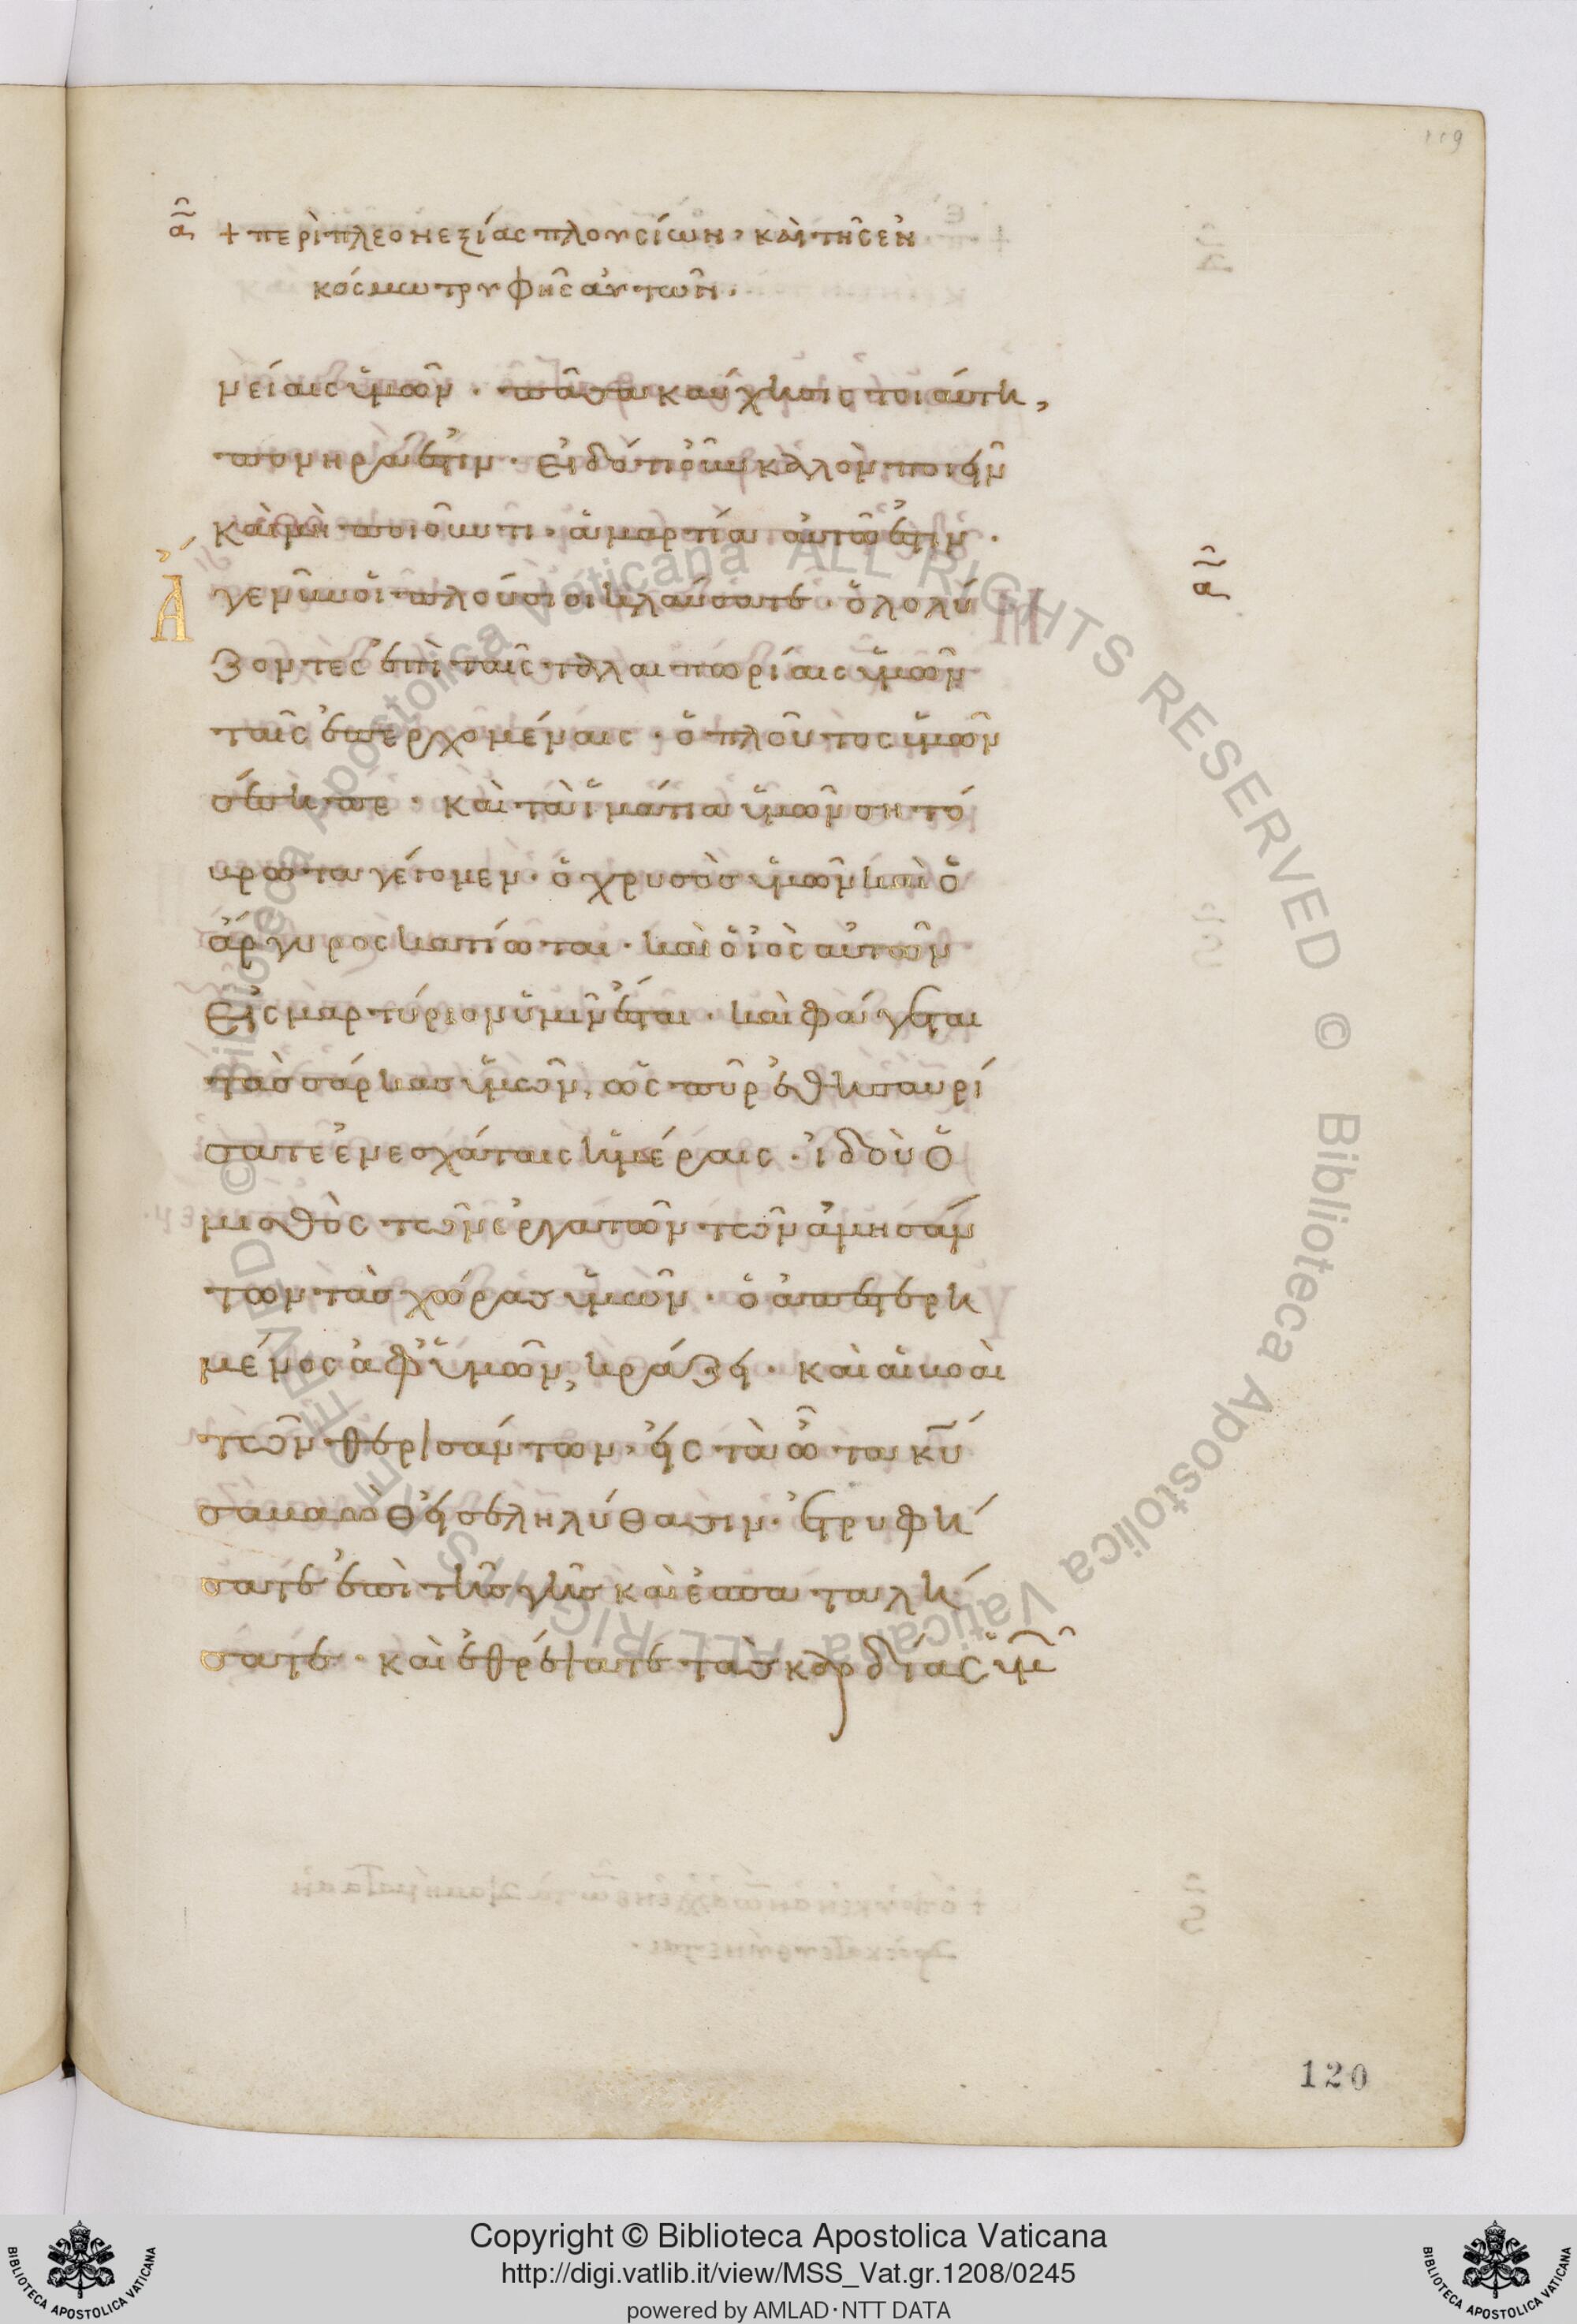 119
α + περὶ πλεονεξίας πλουσίων, καὶ τῆς ἐν
κόσμω τρυφῆς αὐτῶν.
νείαις ὑμῶν · πᾶσα καύχησις τοιαύτη,
πονηρά ἐστιν · εἰδότι οὖν καλὸν ποιεῖν
καὶ μὴ ποιοῦντι · ἁμαρτία αὐτῶ ἐστιν ·
Ἄγε νῦν οἱ πλούσιοι κλαύσατε · ὀλολύ
ζοντες ἐπὶ ταῖς ταλαιπωρίαις ὑμῶν
ταῖς ἐπερχομέναις · ὁ πλοῦτος ὑμῶν
σέσηπε · καὶ τὰ ἱμάτια ὑμῶν σητό
βρωτα γέγονεν · ὁ χρυσὸς ὑμῶν καὶ ὁ
ἄργυρος κατίωται · καὶ ὁ ἰὸς αὐτῶν
εἰς μαρτύριον ὑμῖν ἔσται · καὶ φάγεται
τὰς σάρκας ὑμῶν, ὡς πῦρ ἐθησαυρί
σατε ἐν ἐσχάταις ἡμέραις · ἰδοὺ ὁ
μισθὸς τῶν ἐργατῶν τῶν ἀμησάν
των τὰς χώρας ὑμῶν · ὁ ἀπεστερη
μένος ἀφ' ὑμῶν, κράζει · καὶ αἱ βοαὶ
τῶν θερισάντων, εἰς τὰ ὦτα κυ
σαβαὼθ εἰσεληλύθασιν · ἐτρυφή
σατε ἐπὶ τῆς γῆς καὶ ἐσπαταλή
σατε · καὶ ἐθρέψατε τὰς καρδίας ὑμ
120
Copyright © Biblioteca Apostolica Vaticana
http://digi.vatlib.it/view/MSS_Vat.gr.1208/0245
powered by AMLAD·NTT DATA